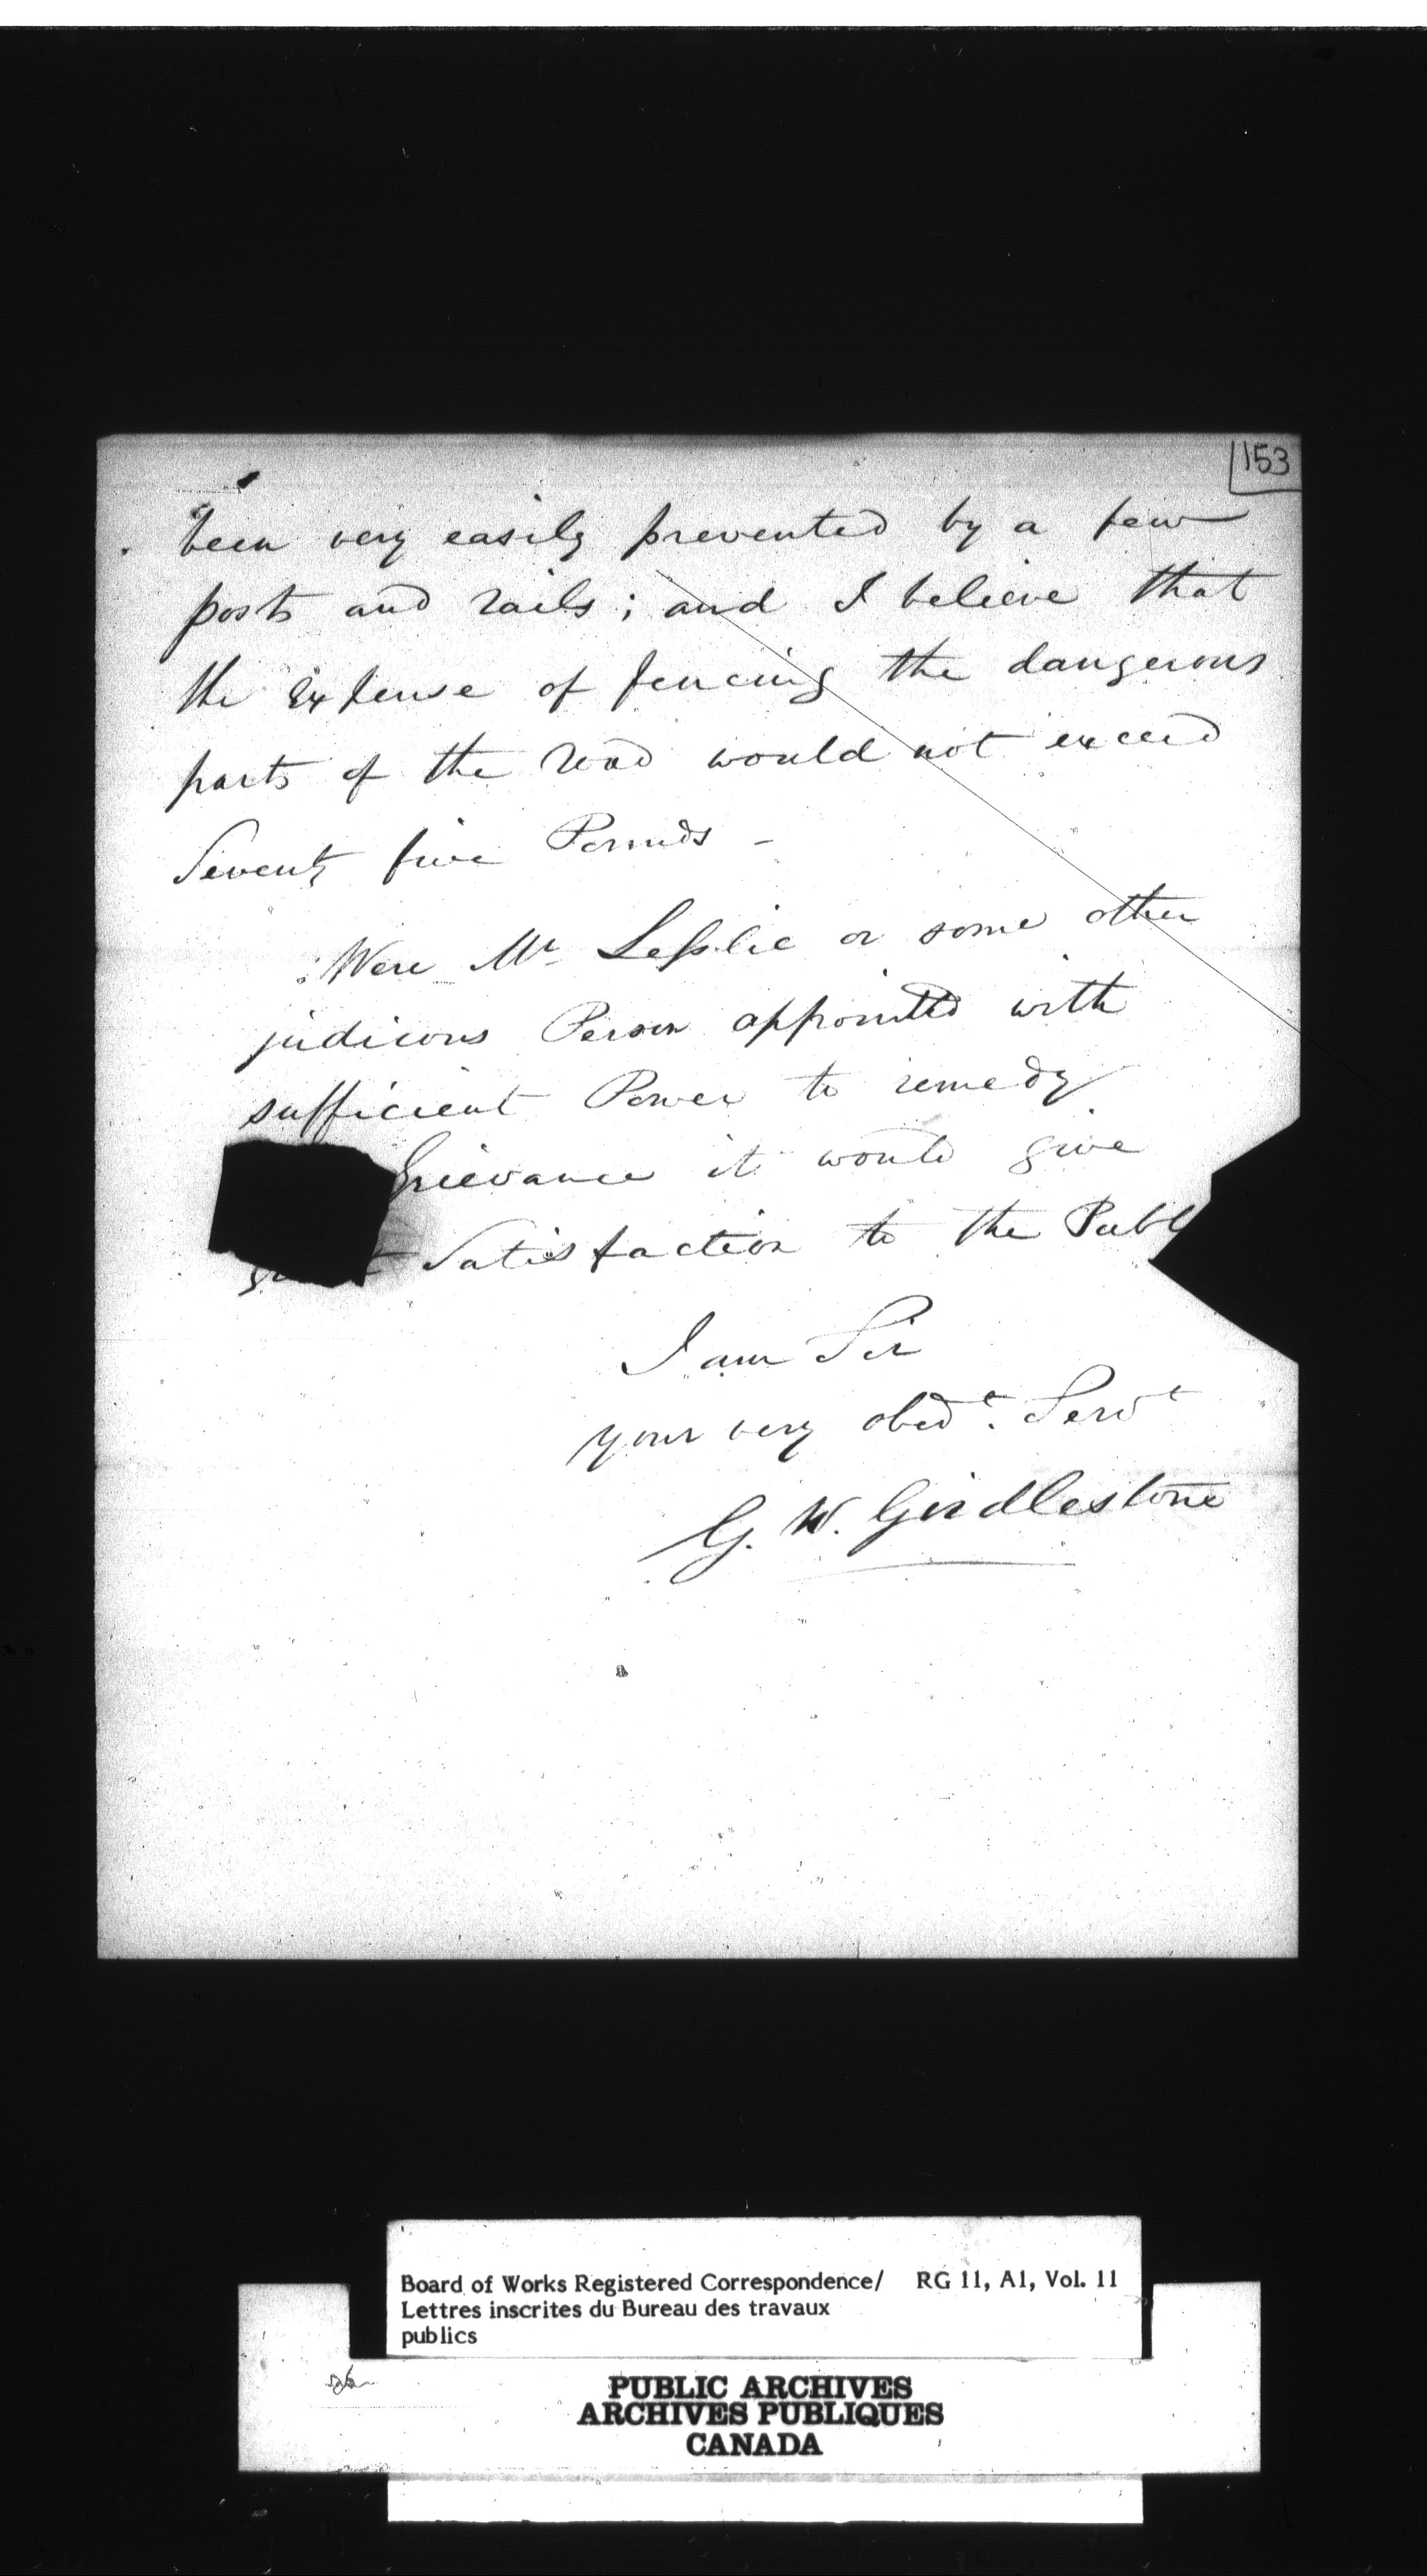 153
been very easily prevented by a few
posts and rails; and I believe that
the Expense of fencing the dangerous
parts of the road would not exceed
Seventy five Pounds -
Were Mr Leslie or some other
judicious Person appointed with
sufficient Power to remedy
Grievance it would give
Satisfaction to the Publ
I am Sir
your very obedt. Servt
G. W. Girdlestone
Board of Works Registered Correspondence/ RG 11, A1, Vol. 11
Lettres inscrites du Bureau des travaux
publics
PUBLIC ARCHIVES
ARCHIVES PUBLIQUES
CANADA